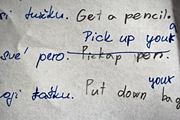 si tužku. Get a pencil.
Pick up your
své pero. Pickap pen.
your
oji tašku. Put down bag